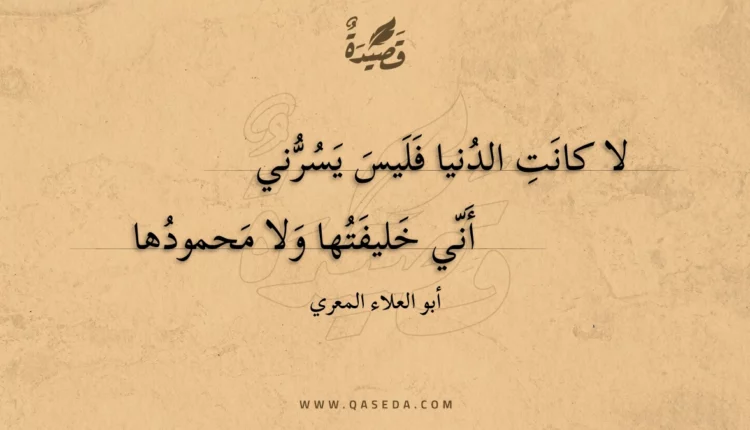 قَصِيدَةٌ
لا كانَتِ الدُنيا فَلَيسَ يَسُرُّني
أَنّي خَليفَتُها وَلا مَحمودُها
أبو العلاء المعري
WWW.QASEDA.COM